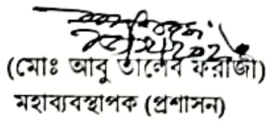 (মোঃ আবু তালেব ফরাজী)
মহাব্যবস্থাপক (প্রশাসন)